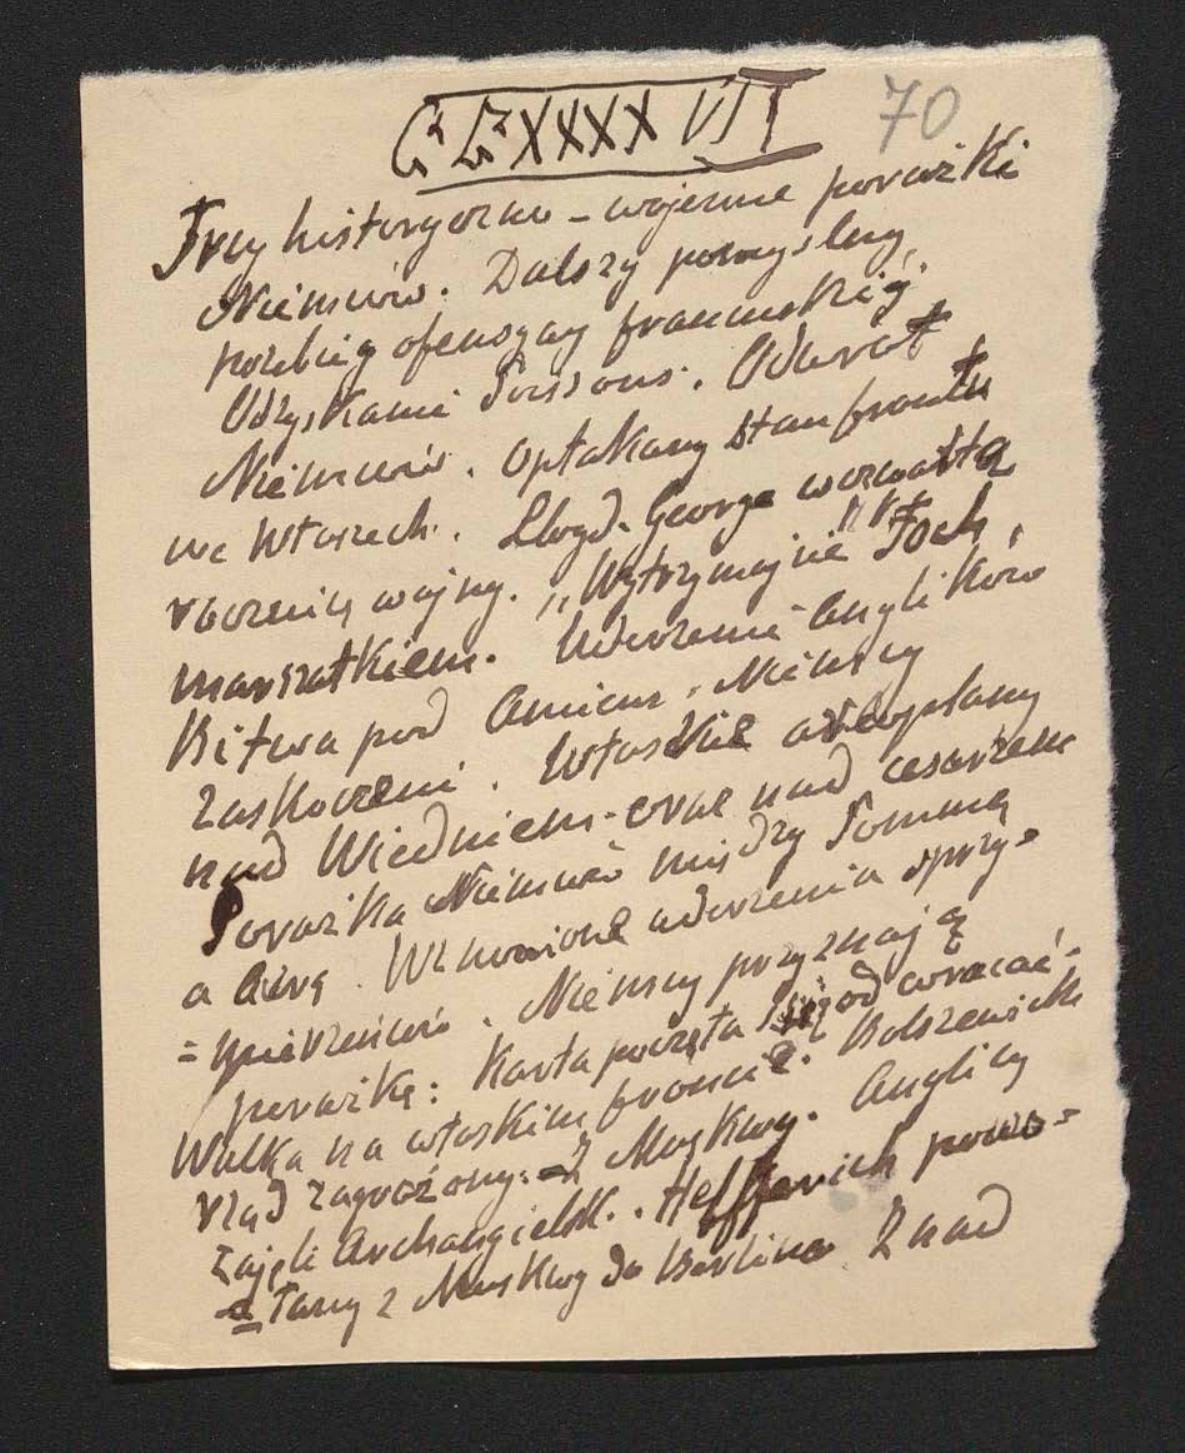 CLXXXXVII 70
Trzy historyczno-wojenne porażki
Niemców. Dalszy pomyślny
przebieg ofensywy francuskiej.
Odzyskanie Soissons. Odwrót
Niemców. Opłakany stan frontu
we Włoszech. Lloyd-George o czwartą
rocznicę wojny. „Wytrzymajcie" Foch
marszałkiem. Uderzenie Anglików
Bitwa pod Amiens. Niemcy
zaskoczeni. Włoskie aeroplany
nad Wiedniem oraz nad cesarzem
Porażka Niemców między Sommą
a Avrą. Wznowione uderzenia sprzy-
=mierzeńców. Niemcy przyznają
porażkę: Karta poczęła się odwracać.
Walka na włoskim froncie. Bolszewick
rząd zagrożony. Z Moskwy. Anglicy
zajęli Archangielsk. Helfferich powo-
=łany z Moskwy do Berlina. Znad